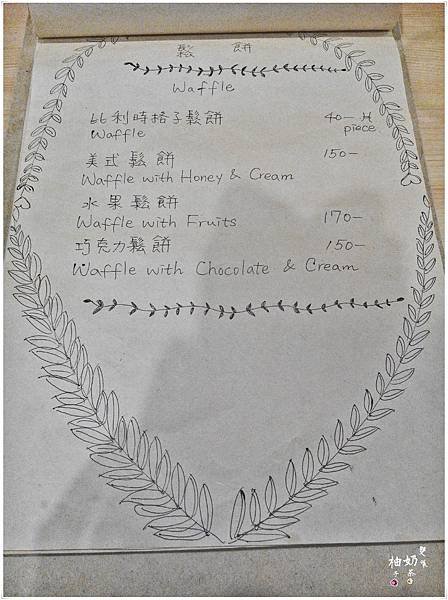 鬆 餅
Waffle
比利時格子鬆餅 40-片
Waffle piece
美式鬆餅 150-
Waffle with Honey & Cream
水果鬆餅
Waffle with Fruits 170-
巧克力鬆餅 150-
Waffle with Chocolate & Cream
柚子
奶茶